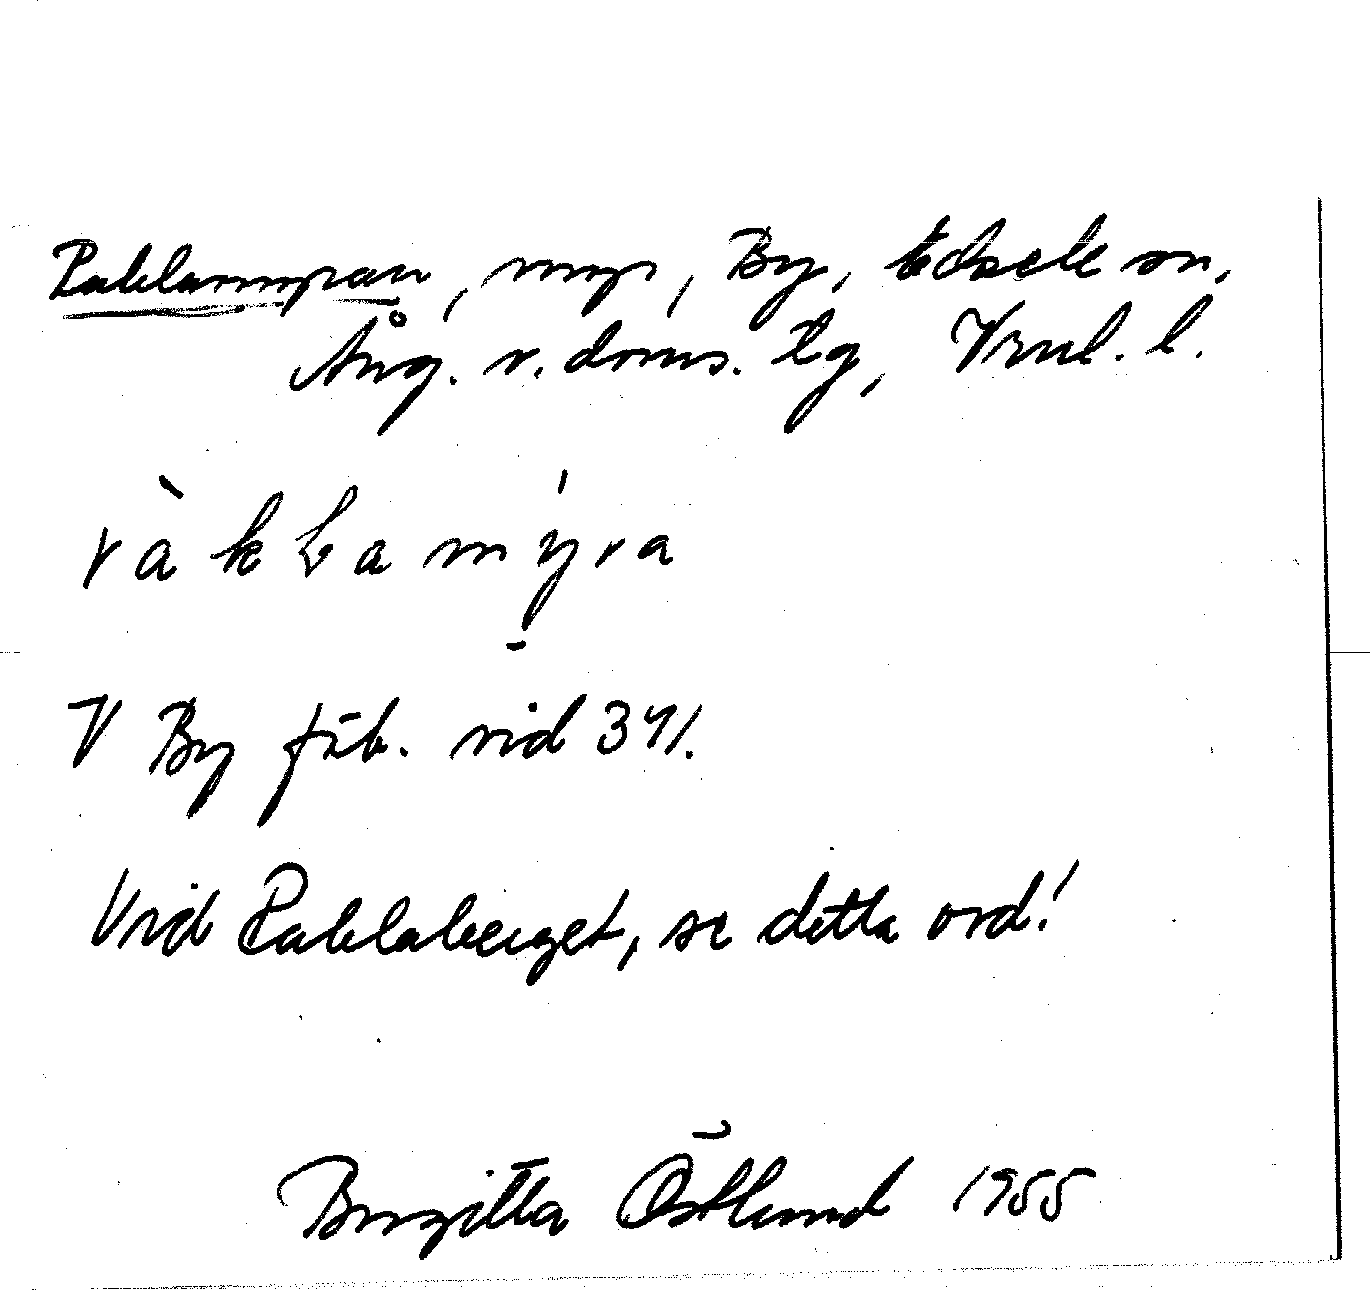 Rakkamyran, myr, By, Edsele sn,
Ång. v. doms. tg, Vrnl. l.
ràkkamýra
V By fäb. vid 341.
Vid Rakkaberget, se detta ord!
Birgitta Östlund 1955